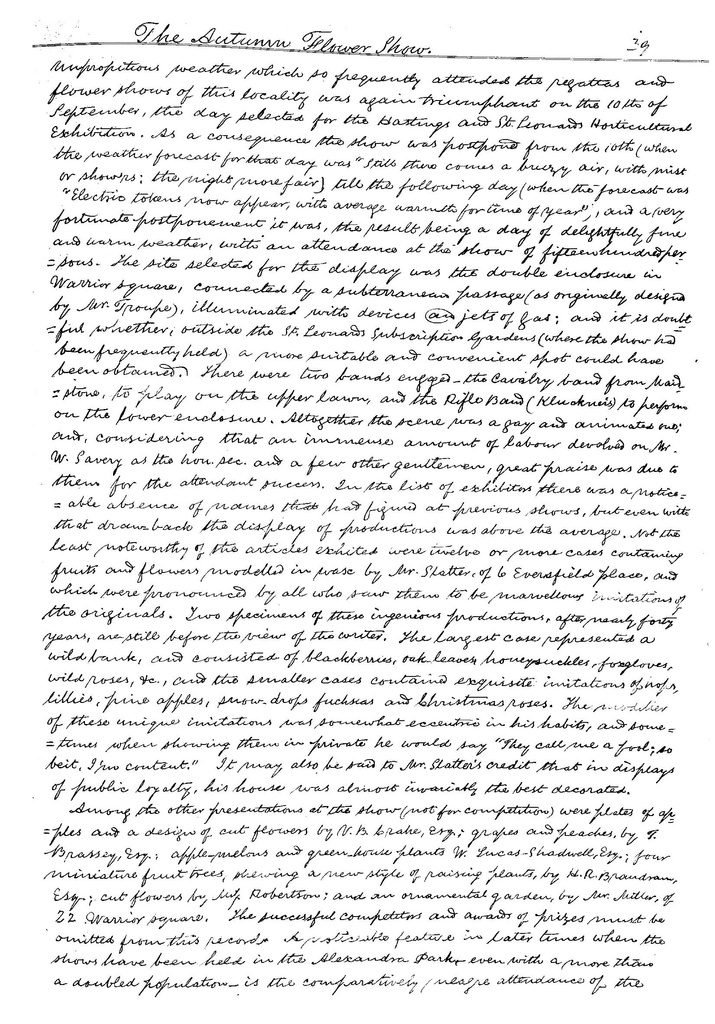 The Autumn Flower Show. 39
Unpropitious weather which so frequently attended the regattas and
flower shows of this locality was again triumphant on the 10th of
September, the day selected for the Hastings and St. Leonards Horticultural
Exhibition. As a consequence the show was postpond from the 10th (when
the weather forecast for that day was "Still there comes a breezy air, with mist
or showers; the night more fair) till the following day (when the forecast was
"Electric tokens now appear, with average warmth for time of year", and a (very
fortunate postponement it was, the result being a day of delightfully fine
and warm weather, with an attendance at the show of fifteen hundred per
=sons. The site selected for the display was the double enclosure in
Warrior square, connected by a subterranean passage (as originally designed
by Mr. Troupe), illuminated with devices an jets of gas; and it is doubt
=ful whether, outside the St. Leonards Subscription Gardens (where the show had
been frequently held) a more suitable and convenient spot could have
been obtained. There were two bands engaged – the Cavalry band from Maid-
=stone, to play on the upper lawn, and the Rifle Band (Kluckner's) to perform
on the lower enclosure. Altogether the scene was a gay and animated one;
and, considering that an immense amount of labour devolved on Mr.
W. Savery as the hon. sec. and a few other gentlemen, great praise was due to
them for the attendant success. In the list of exhibitors there was a notice=
=able absence of names that had figured at previous shows, but even with
that draw-back the display of productions was above the average. Not the
least noteworthy of the articles exhited were twelve or more cases containing
fruits and flowers modelled in wax by Mr. Slatter, of 6 Eversfield place, and
which were pronounced by all who saw them to be marvellous imitations of
the originals. Two specimens of these ingenious productions, after nearly forty
years, are still before the view of the writer. The largest case represented a
wild bank, and consisted of blackberries, oak leaves, honeysuckles, foxgloves,
wild roses, &c., and the smaller cases contained exquisite imitations of hops,
lillies, pine apples, snow-drops fuchsias and Christmas roses. The modeller
of these unique imitations was somewhat eccentric in his habits, and some=
=times when showing them in private he would say "They call me a fool; so
be it, I'm content." It may also be said to Mr. Slatter's credit that in displays
of public loyalty, his house was almost invariably the best decorated.
Among the other presentations at the show (not for competition) were plates of ap=
=ples and a design of cut flowers by V. B. Crake, Esq.; grapes and peaches, by T.
Brassey, Esq.; apple-melons and green-house plants W. Lucas-Shadwell, Esq.; four
miniature fruit trees, shewing a new style of raising plants, by H. R. Braudram,
Esq.; cut flowers by Miss Robertson; and an ornamental garden, by Mr. Miller, of
22 Warrior square. The successful competitors and awards of prizes must be
omitted from this record. A noticeable feature in later times when the
shows have been held in the Alexandra Park – even with a more than
a doubled population – is the comparatively meagre attendance of the